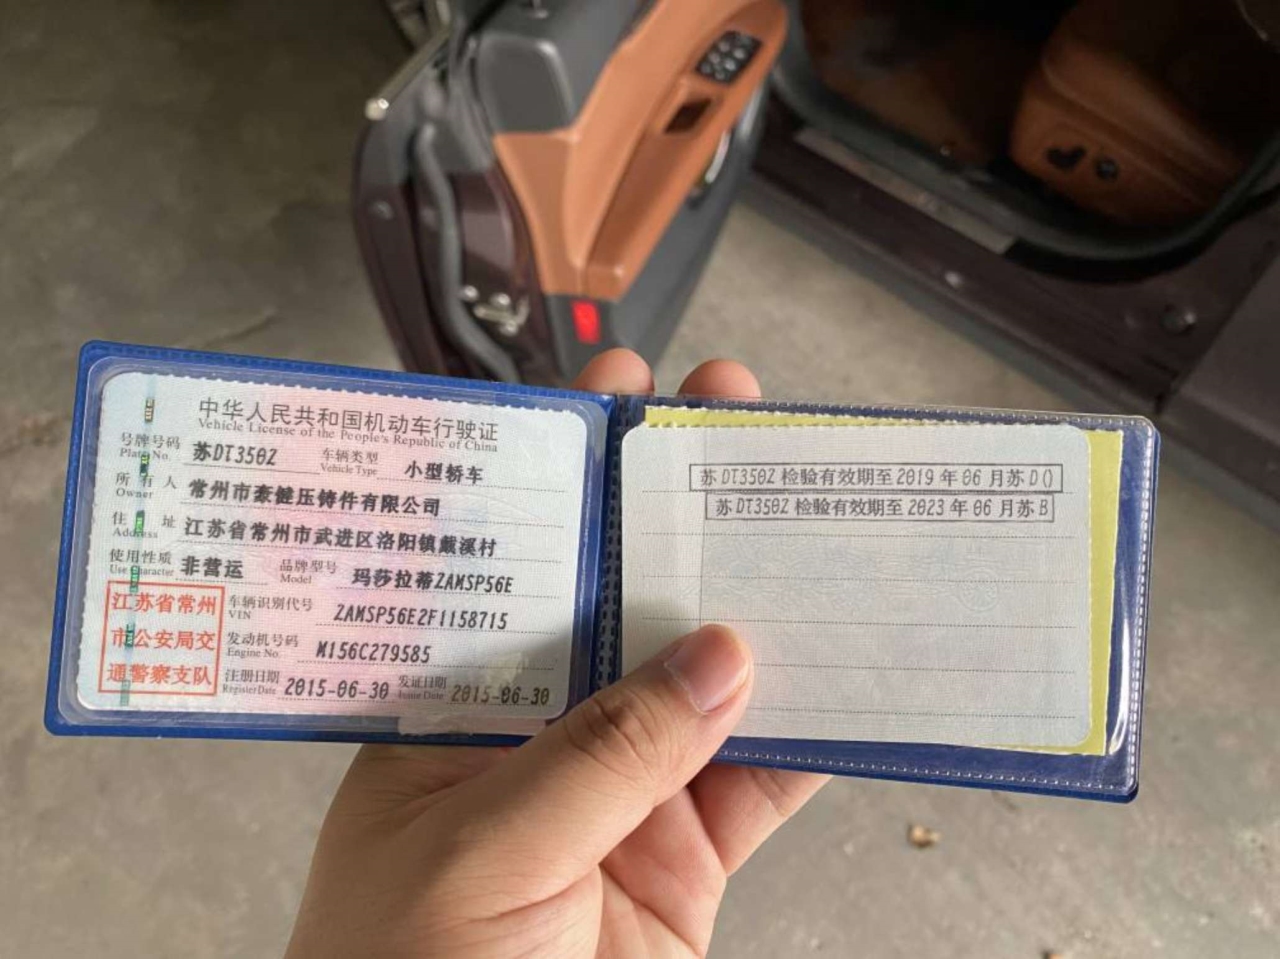 中华人民共和国机动车行驶证
Vehicle License of the People's Republic of China
号牌号码 苏DT350Z 车辆类型 小型轿车
Plate No. Vehicle Type
所有人 常州市豪健压铸件有限公司
Owner
住址 江苏省常州市武进区洛阳镇戴溪村
Address
使用性质 非营运 品牌型号 玛莎拉蒂ZAMSP56E
Use Character Model
江苏省常州市公安局交通警察支队
车辆识别代号 ZAMSP56E2F1158715
VIN
发动机号码 M156C279585
Engine No.
注册日期 2015-06-30 发证日期 2015-06-30
Register Date Issue Date
苏DT350Z检验有效期至2019年06月苏D()
苏DT350Z检验有效期至2023年06月苏B